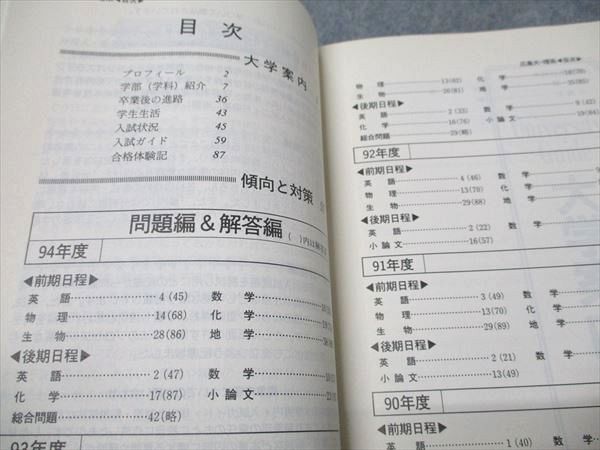 目次
大学案内
プロフィール 2
学部（学科）紹介 7
卒業後の進路 36
学生生活 43
入試状況 45
入試ガイド 59
合格体験記 87
傾向と対策
問題編＆解答編
94年度
◀前期日程▶
英語………4 (45) 数学
物理………14(68) 化学
生物………28(86) 地学
◀後期日程▶
英語………2 (47) 数学
化学………17(87) 小論文
総合問題………42(略)
93年度
物理………13(82) 化学
生物………26(81) 地学
◀後期日程▶
英語………2 (33) 数学
化学………16(76) 小論文
総合問題………29(略)
92年度
◀前期日程▶
英語………4 (46) 数学
物理………13(70) 化学
生物………29(88) 地学
◀後期日程▶
英語………2 (22) 数学
小論文………16(57)
91年度
◀前期日程▶
英語………3 (49) 数学
物理………13(70) 化学
生物………29(89) 地学
◀後期日程▶
英語………2 (21) 数学
小論文………13(49)
90年度
◀前期日程▶
英語………1 (40) 数学